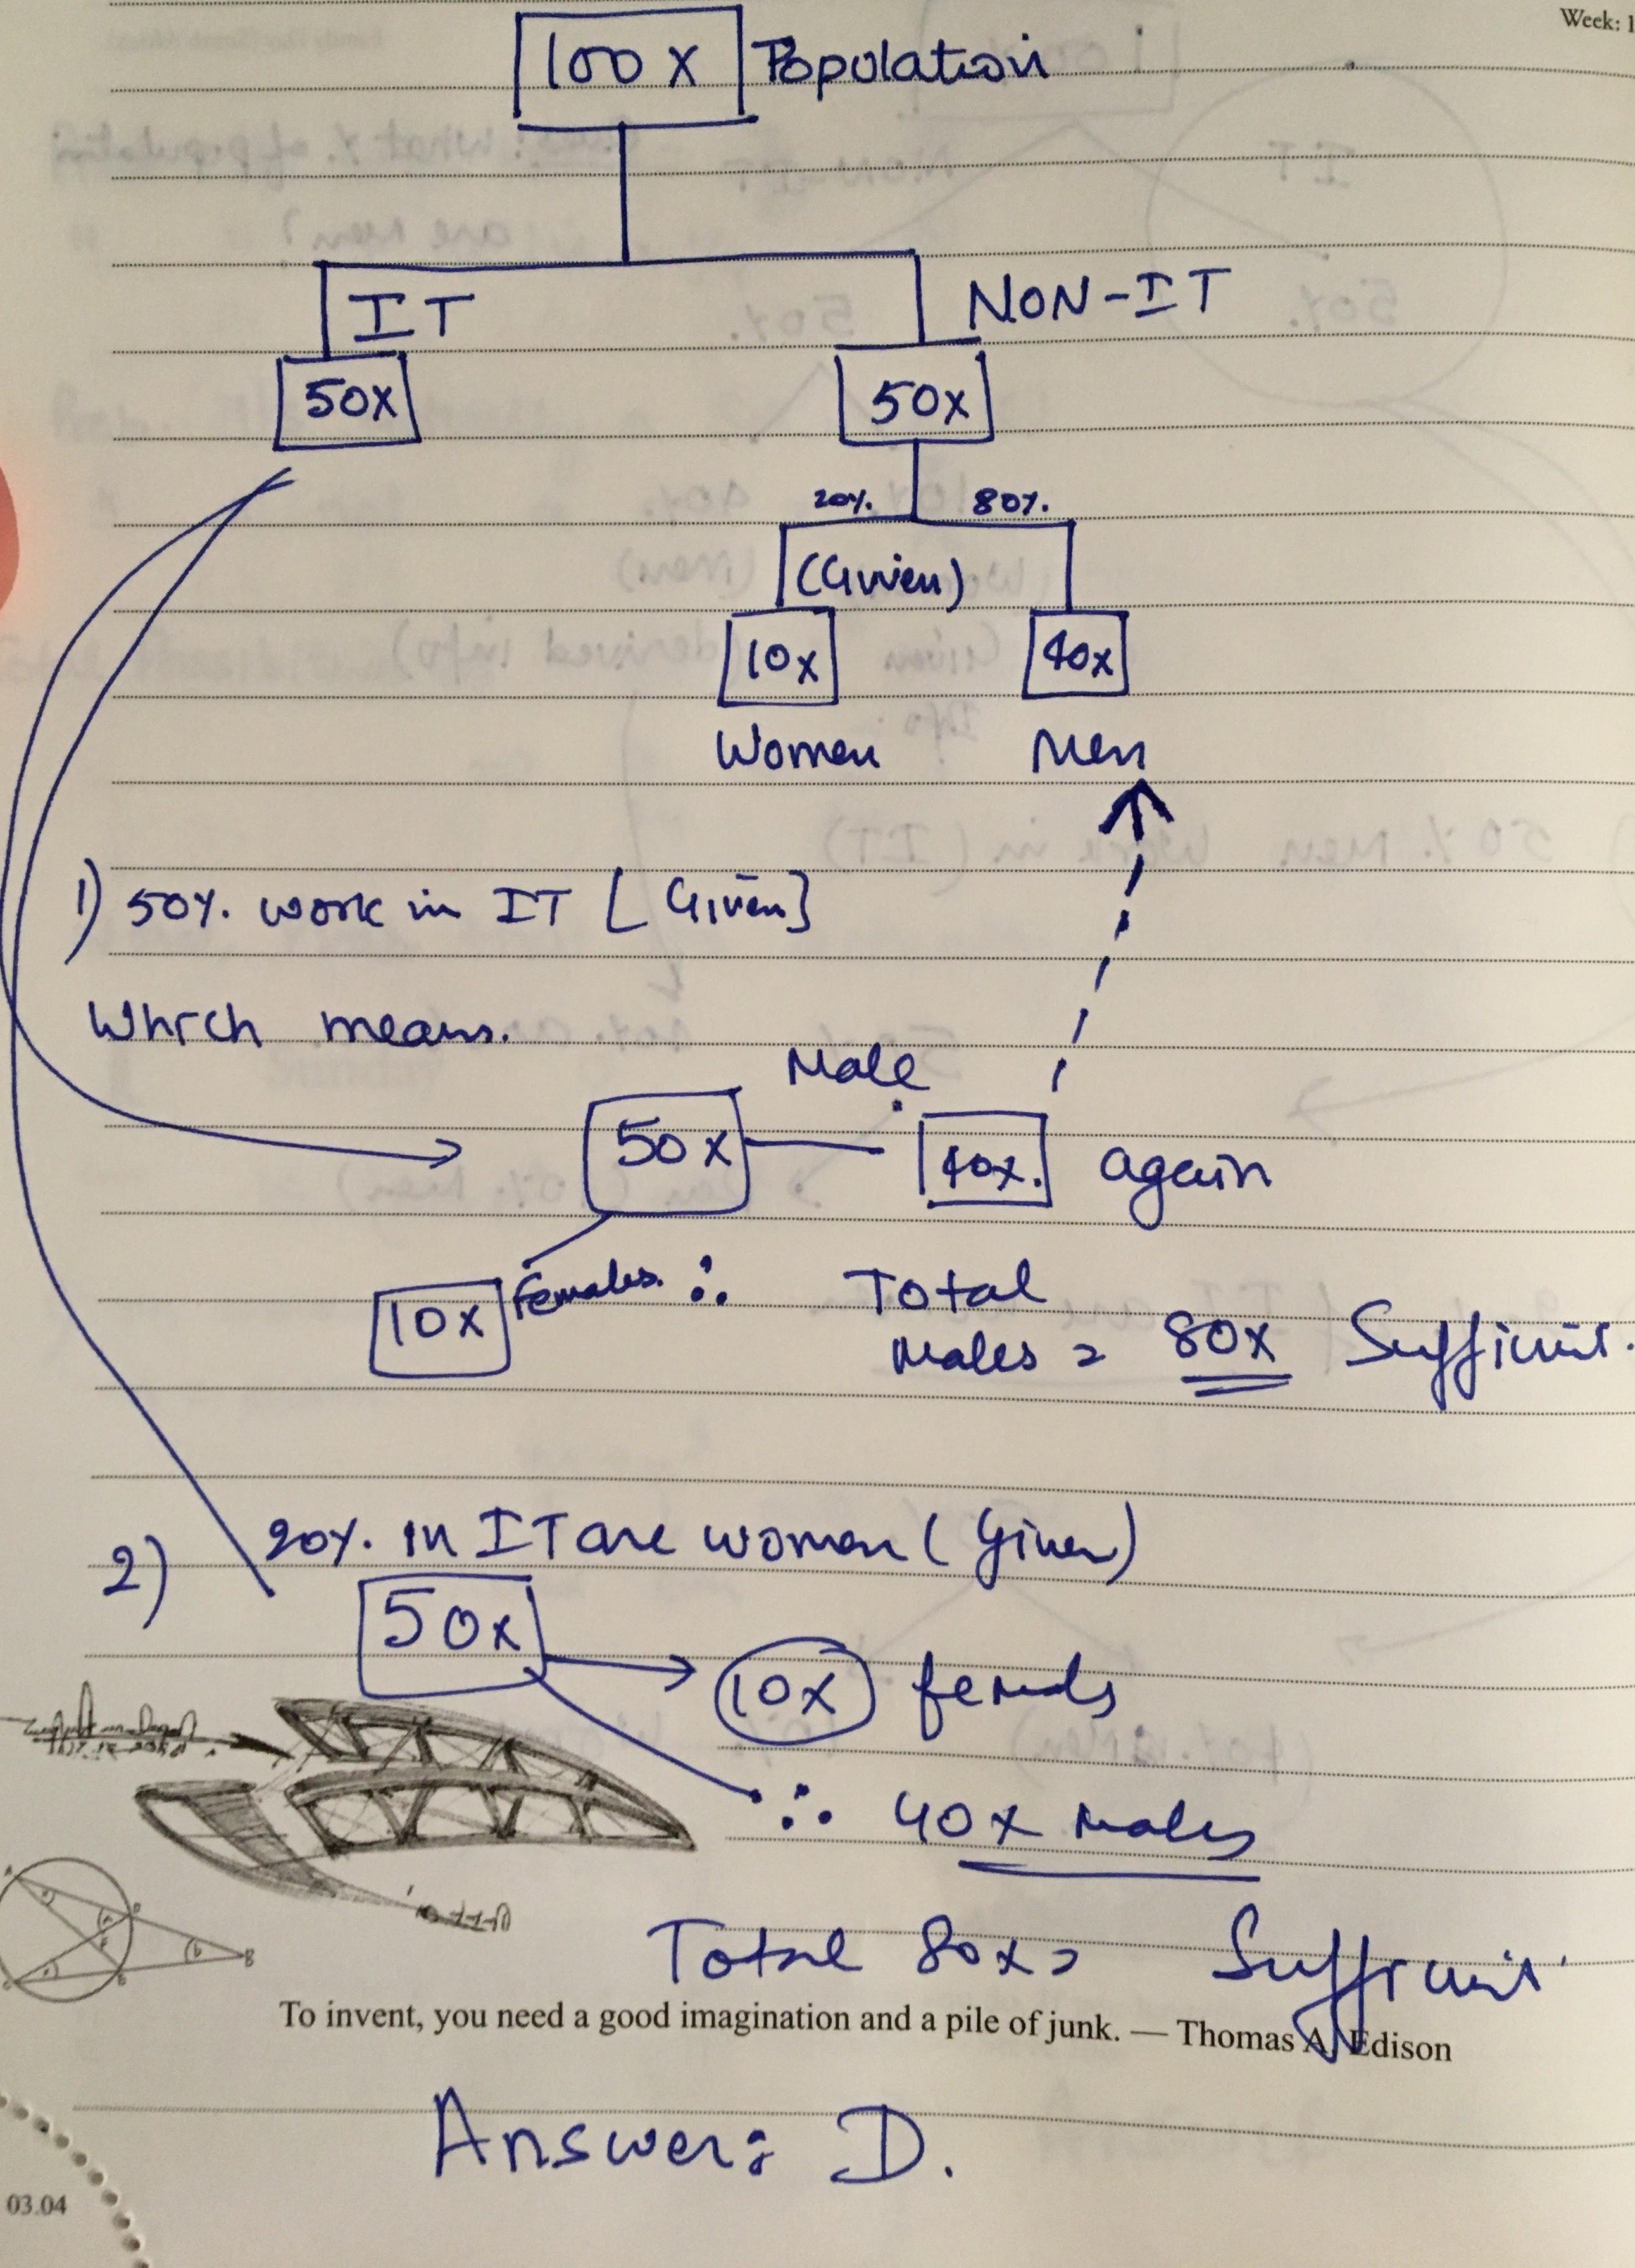 Week: 1
100 x Population
IT NON-IT
50x 50x
20%. 80%.
(Given)
10x 40x
Women Men
1) 50%. work in IT [Given]
Which means.
Male
50x 40x. again
10x Females. ∴ Total
Males = 80x Sufficient.
2) 20%. in IT are women (Given)
50x
10x
∴ 40x Males
Total 80x = Sufficient.
To invent, you need a good imagination and a pile of junk. — Thomas A. Edison
Answer: D.
03.04